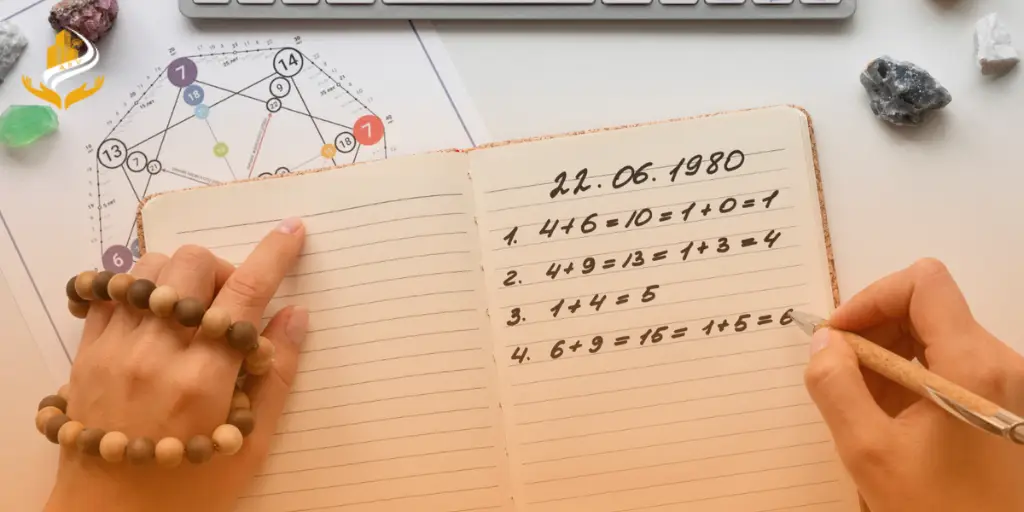 7
14
18
9
22
7
18
13
7
21
6
22.06.1980
1. 4+6=10=1+0=1
2. 4+9=13=1+3=4
3. 1+4=5
4. 6+9=15=1+5=6